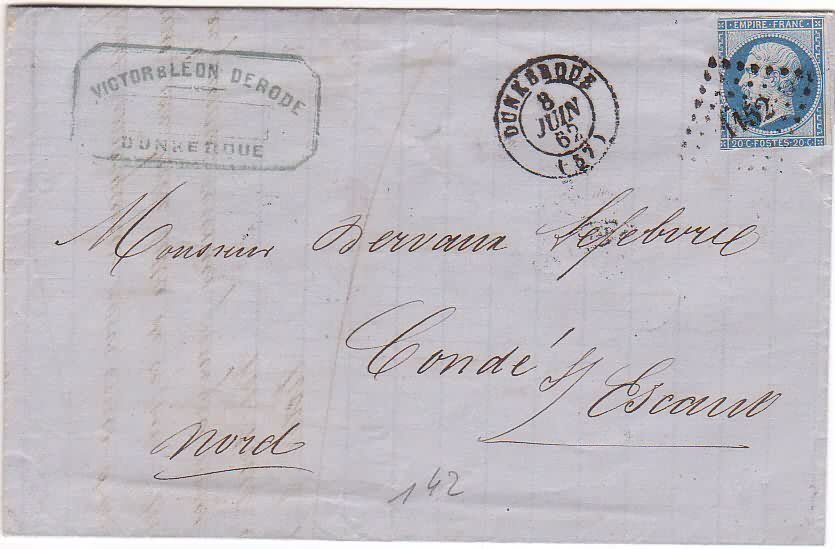 VICTOR & LÉON DERODE
DUNKERQUE
DUNKERQUE
8
JUIN
62
(57)
EMPIRE FRANC
1152
20 C - POSTES - 20 C
Monsieur Dervaux Lefebvre
Condé s/ Escaut
Nord
142